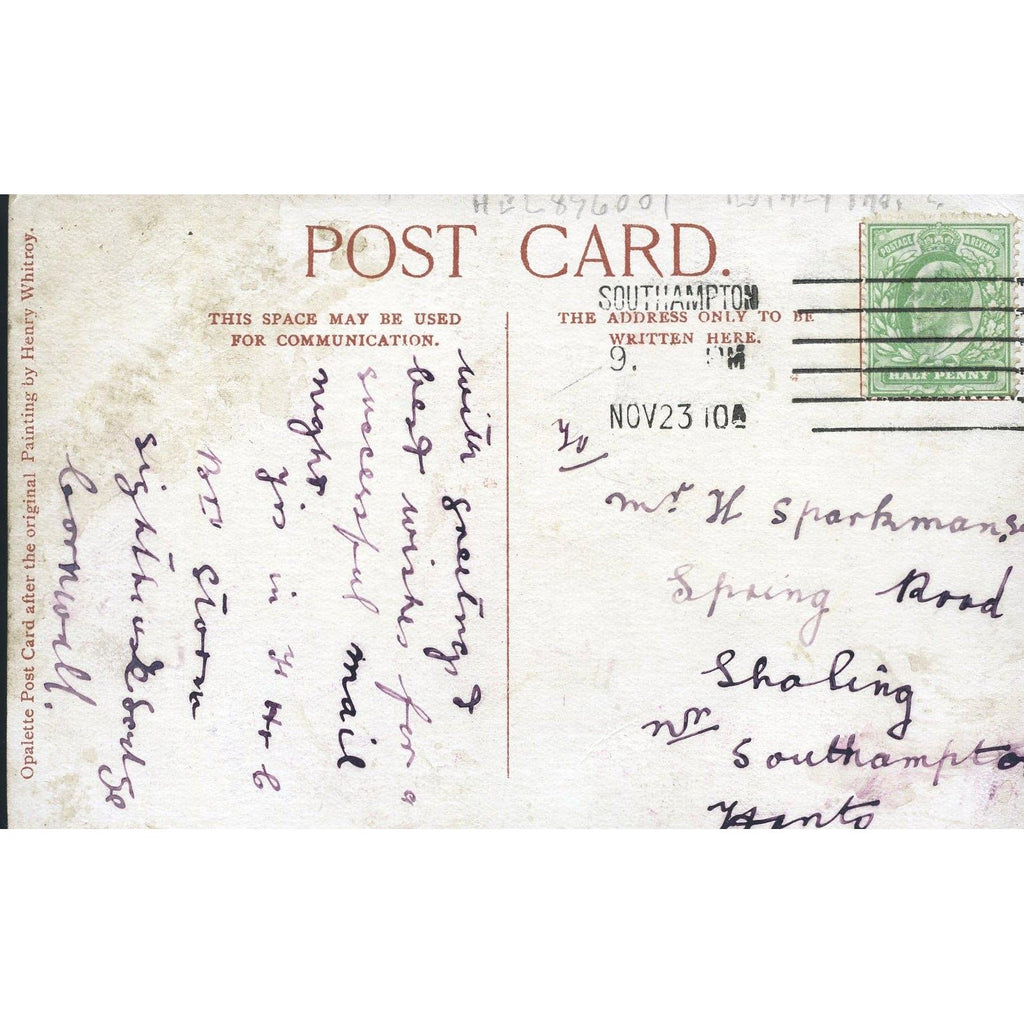 HBL896001
POST CARD.
THIS SPACE MAY BE USED
FOR COMMUNICATION.
THE ADDRESS ONLY TO BE
WRITTEN HERE.
SOUTHAMPTON
9. PM
NOV 23 10
POSTAGE & REVENUE
HALF PENNY
Opalette Post Card after the original Painting by Henry Whitroy.
with greetings &
best wishes for a
successful mail
night
Yrs in
storm
Cornwall.
To
Mr H Sparkman,
Spring Road
Sholing
nr Southampto
Hants